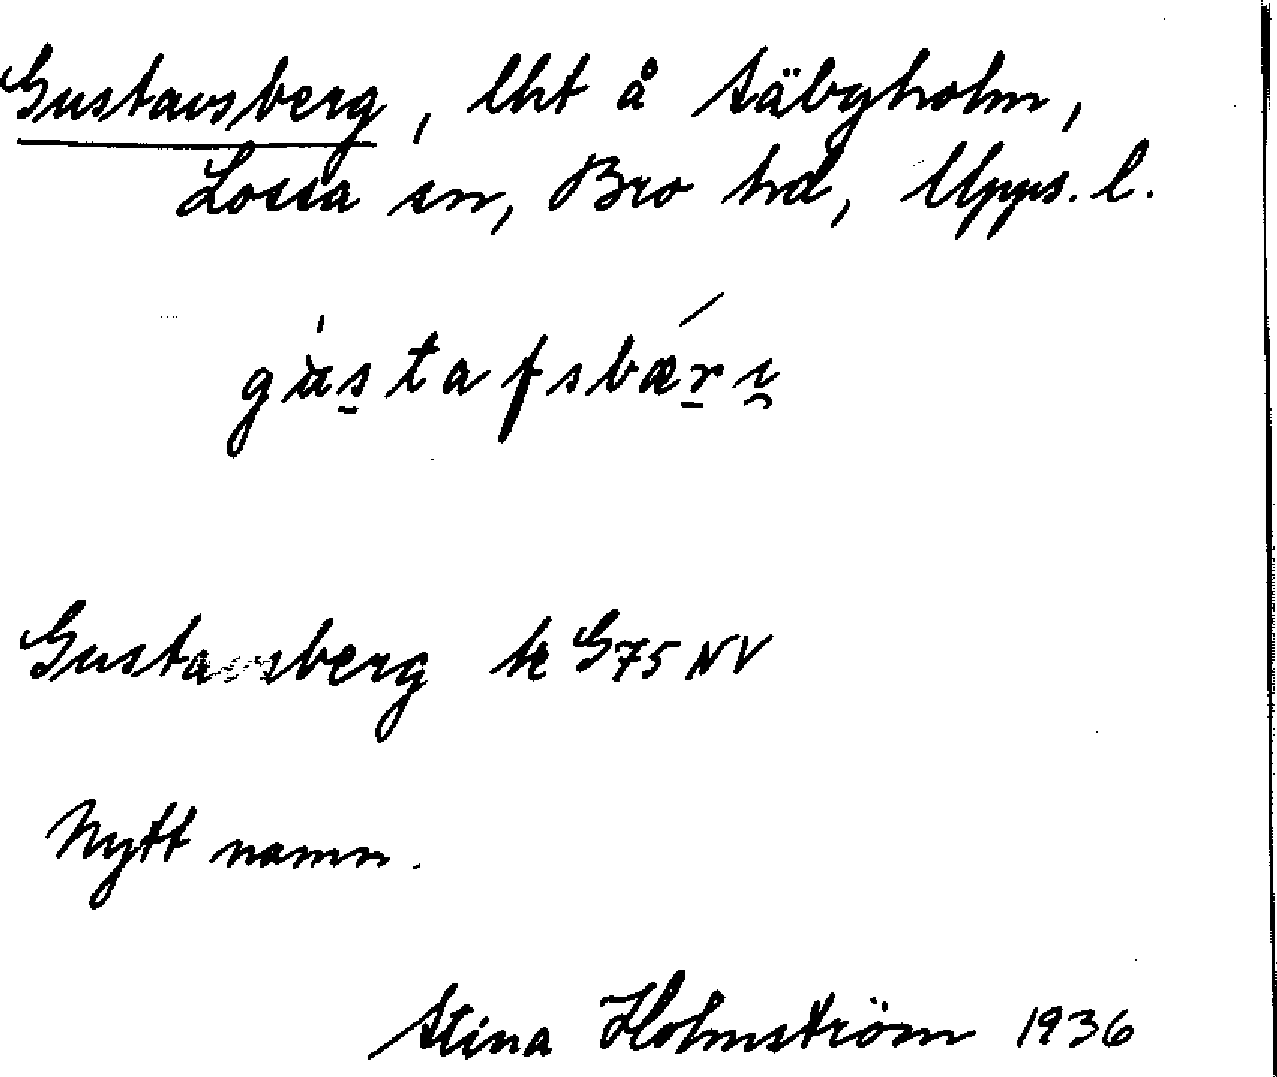 Gustavsberg, lht å Säbyholm,
Lossa sn, Bro hd, Upps. l.
gùstafsbǽrị
Gustavsberg k G75NV
Nytt namn.
Stina Holmström 1936